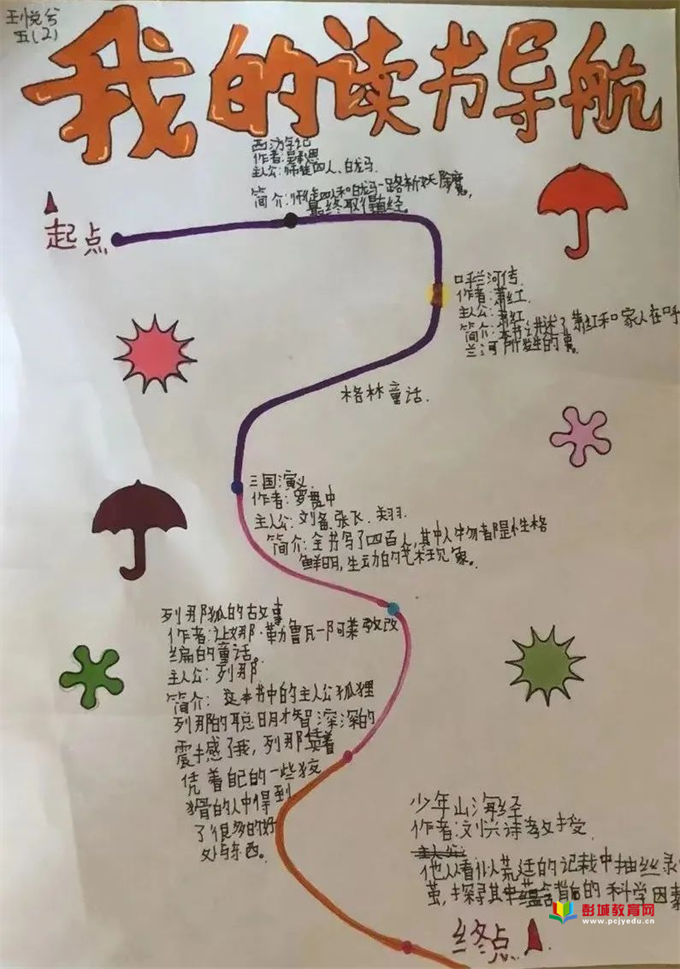 王悦兮
五(2)
我的读书导航
西游记
作者:吴承恩
主人公:师徒四人、白龙马
简介:师徒四人和白龙马一路斩妖除魔,
最终取得真经
起点
呼兰河传
作者:萧红
主人公:萧红
简介:本书讲述了萧红和家人在呼
兰河所发生的事
格林童话.
三国演义
作者:罗贯中
主人公:刘备.张飞.关羽
简介:全书写了四百人,其中人物都是性格
鲜明,生动的艺术现象。
列那狐的古故事
作者:让娜·勒鲁瓦-阿莱 敦改
编的童话。
主人公:列那
简介:这本书中的主人公狐狸
列那的聪明才智深深的
震撼了我,列那
凭着自己的一些狡
猾的人中得到
了很多的好
处与东西。
少年山海经
作者:刘兴诗教授.
主人公:
他从看似荒诞的记载中抽丝录
茧,探寻其中蕴含背后的科学因素
终点
彭城教育网
www.pcjyedu.cn